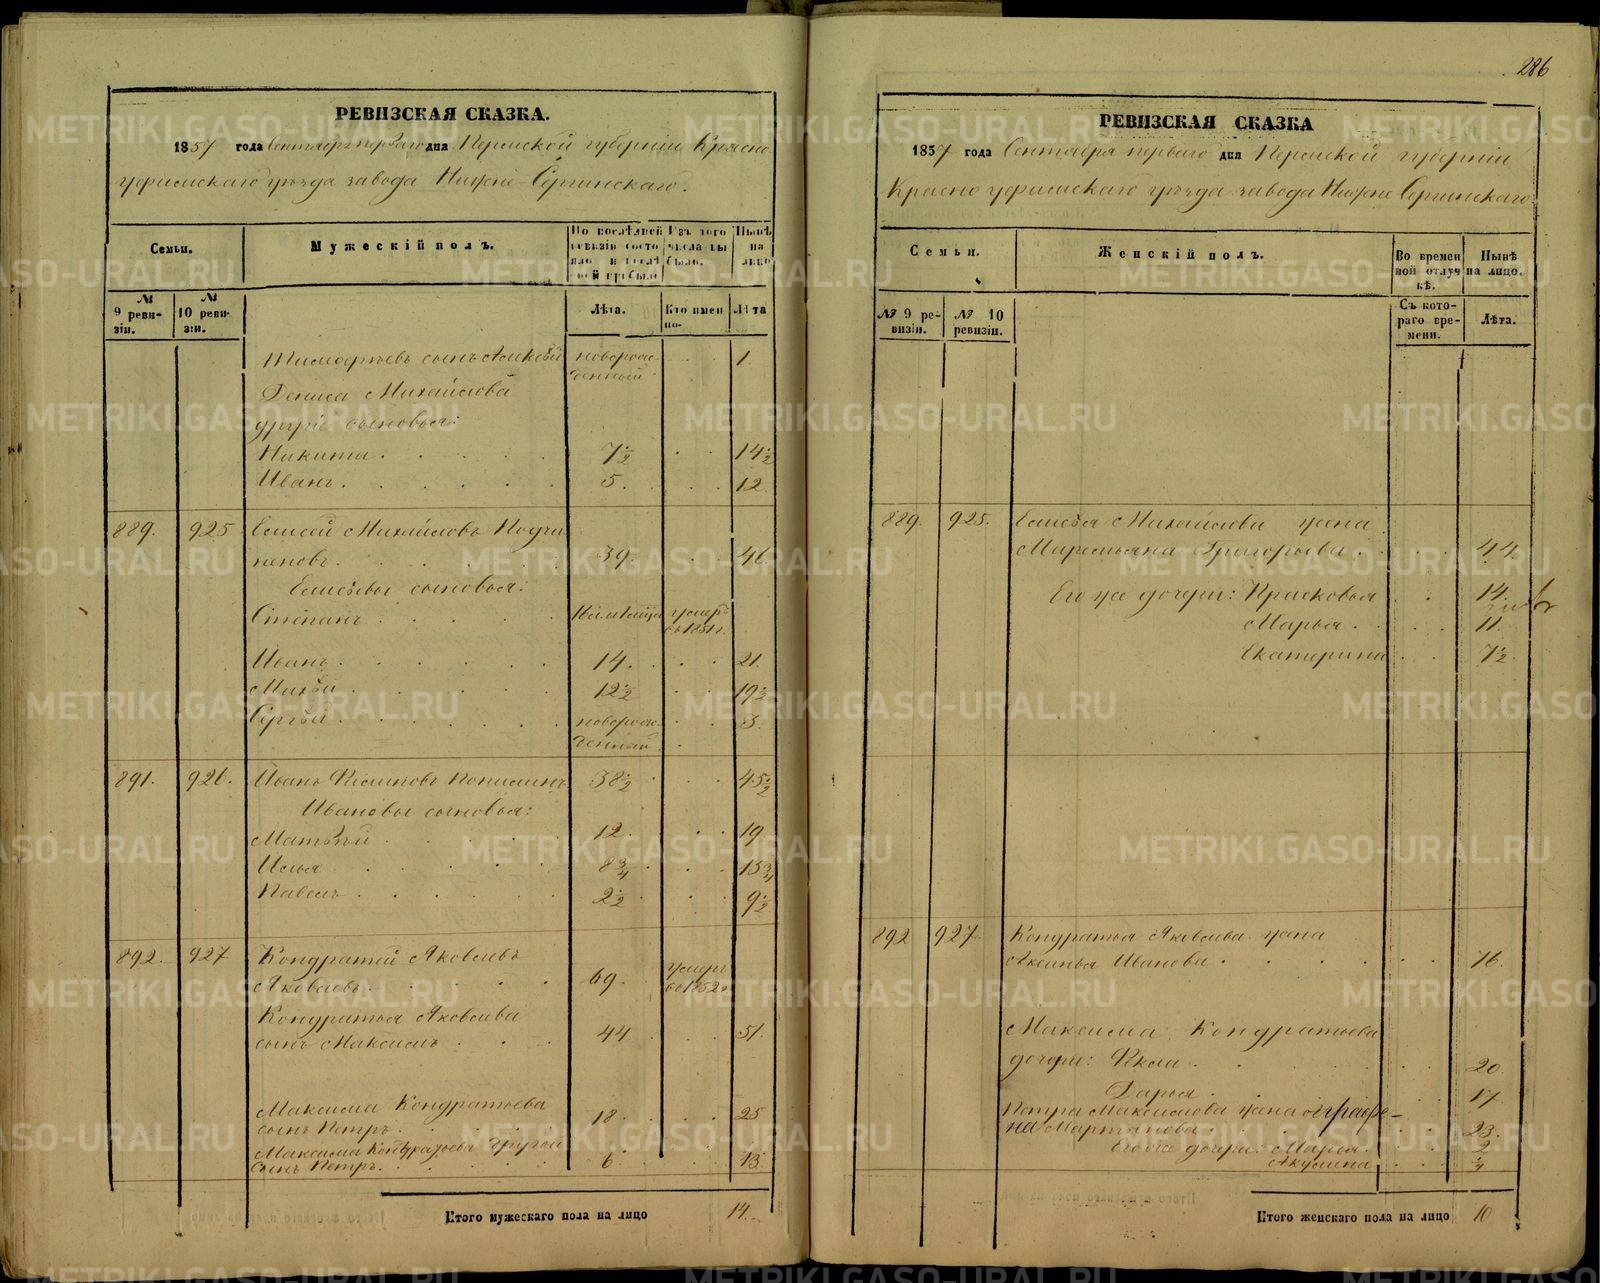 286
РЕВИЗСКАЯ СКАЗКА.
1857 года Сентября перваго дня Пермской губернiи Красно
уфимскаго уѣзда завода Нижне-Сергинскаго.
Семьи.
Мужескiй полъ.
По послѣдней ревизiи состояло и послѣ той прибыло
Изъ того числа выбыло.
Нынѣ на лицо
№ 9 ревизiи.
№ 10 ревизiи.
Лѣта.
Кто именно.
Лѣта
Тимофѣевъ сынъ Алексѣй новорожденный 1.
Дениса Михайлова
другiе сыновья:
Никита 7 1/2 14 1/2
Иванъ. 5. 12
889. 925 Елисей Михайловъ Подчи
неновъ. 39. 46
Елисѣевы сыновья:
Степанъ умеръ въ 1851 г.
Иванъ 14. 21.
Михѣй 12 1/2 19 1/2
Сергѣй новорожденный 3.
891. 926. Иванъ Филиповъ 38 1/2 45 1/2
Ивановы сыновья:
Матвѣй 12. 19
Илья 8 3/4 15 3/4
Павелъ 2 1/2 9 1/2
892. 927 Кондратiй Яковлевъ
Яковлевъ. 69. умеръ въ 1852 г.
Кондратья Яковлева
сынъ Максимъ 44 51.
Максима Кондратьева
сынъ Петръ. 18. 25
Максима Кондратьева другой
сынъ Петръ. 6. 13
Итого мужескаго пола на лицо 14.
РЕВИЗСКАЯ СКАЗКА
1857 года Сентября перваго дня Пермской губернiи
Красноуфимскаго уѣзда завода Нижне Сергинскаго.
Семьи.
Женскiй полъ.
Во временной отлучкѣ.
Нынѣ на лицо.
№ 9 ревизiи.
№ 10 ревизiи.
Съ котораго времени.
Лѣта.
889. 925. Елисѣя Михайлова жена
Маремьяна Григорьева. 44.
Его же дочери: Прасковья 14.
Марья. 11.
Екатерина 7 1/2
892 927. Кондратья Яковлева жена
Аксинья Иванова. 76.
Максима Кондратьева
дочери: Фекла. 20
Дарья. 17
Петра Максимова жена Аграфе-
на Мартынова. 23.
Его же дочери: Марья. 2
Акулина 1/4
Итого женскаго пола на лицо 10
METRIKI.GASO-URAL.RU